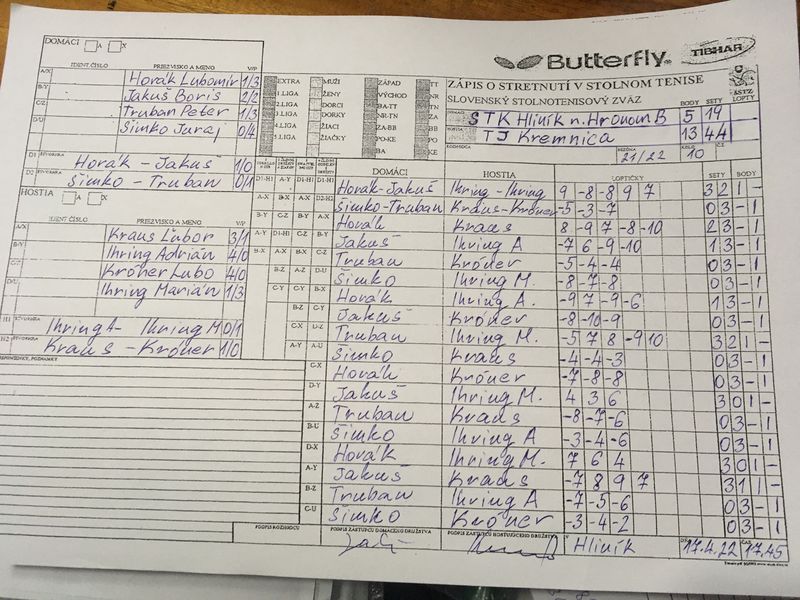 DOMÁCI A X
Butterfly TIBHAR
IDENT.ČÍSLO PRIEZVISKO A MENO V/P
A/X Horák Ľubomír 1/3
B/Y Jakuš Boris 2/2
C/Z Truban Peter 1/3
D/U Šimko Juraj 0/4
D1 ŠTVORHRA Horák - Jakuš 1/0
D2 ŠTVORHRA Šimko - Truban 0/1
EXTRA MUŽI ZÁPAD TT
1.LIGA ŽENY VÝCHOD NR
2.LIGA DORCI BA-TT TN
3.LIGA DORKY NR-TN ZA
4.LIGA ŽIACI ZA-BB BB
5.LIGA ŽIAČKY PO-KE PO
BA KE
ZÁPIS O STRETNUTÍ V STOLNOM TENISE
SLOVENSKÝ STOLNOTENISOVÝ ZVÄZ
BODY SETY LOPTY
STK Hliník n. Hronom B 5 19
TJ Kremnica 13 44
ROZHODCA SEZÓNA 21/22 KOLO 10
HOSTIA
IDENT ČÍSLO PRIEZVISKO A MENO V/P
A/X Kraus Ľubor 3/1
B/Y Ihring Adrián 4/0
C/Z Króner Lubo 4/0
D/U Ihring Marián 1/3
H1 ŠTVORHRA Ihring A - Ihring M 0/1
H2 ŠTVORHRA Kraus - Króner 1/0
DOMÁCI HOSTIA LOPTIČKY SETY BODY
D1-H1 Horák-Jakuš Ihring - Ihring 9 -8 -8 9 7 3 2 1 -
D2-H2 Šimko-Truban Kraus-Króner -5 -3 -7 0 3 - 1
A-X Horák Kraus 8 -9 7 -8 -10 2 3 - 1
B-Y Jakuš Ihring A -7 6 -9 -10 1 3 - 1
C-Z Truban Króner -5 -4 -4 0 3 - 1
D-U Šimko Ihring M. -8 -7 -8 0 3 - 1
Horák Ihring A. -9 7 -9 -6 1 3 - 1
Jakuš Króner -8 -10 -9 0 3 - 1
D-Z Truban Ihring M. -5 7 8 -9 10 3 2 1 -
A-U Šimko Kraus -4 -4 -3 0 3 - 1
C-X Horák Króner -7 -8 -8 0 3 - 1
D-Y Jakuš Ihring M. 4 3 6 3 0 1 -
A-Z Truban Kraus -8 -7 -6 0 3 - 1
B-U Šimko Ihring A -3 -4 -6 0 3 - 1
D-X Horák Ihring M. 7 6 4 3 0 1 -
A-Y Jakuš Kraus -7 8 9 7 3 1 1 -
B-Z Truban Ihring A -7 -5 -6 0 3 - 1
C-U Šimko Króner -3 -4 -2 0 3 - 1
PODPIS ROZHODCU PODPIS ZÁSTUPCU DOMÁCEHO DRUŽSTVA PODPIS ZÁSTUPCU HOSŤUJÚCEHO DRUŽSTVA
V Hliník 17.4.22 ČAS 17.45